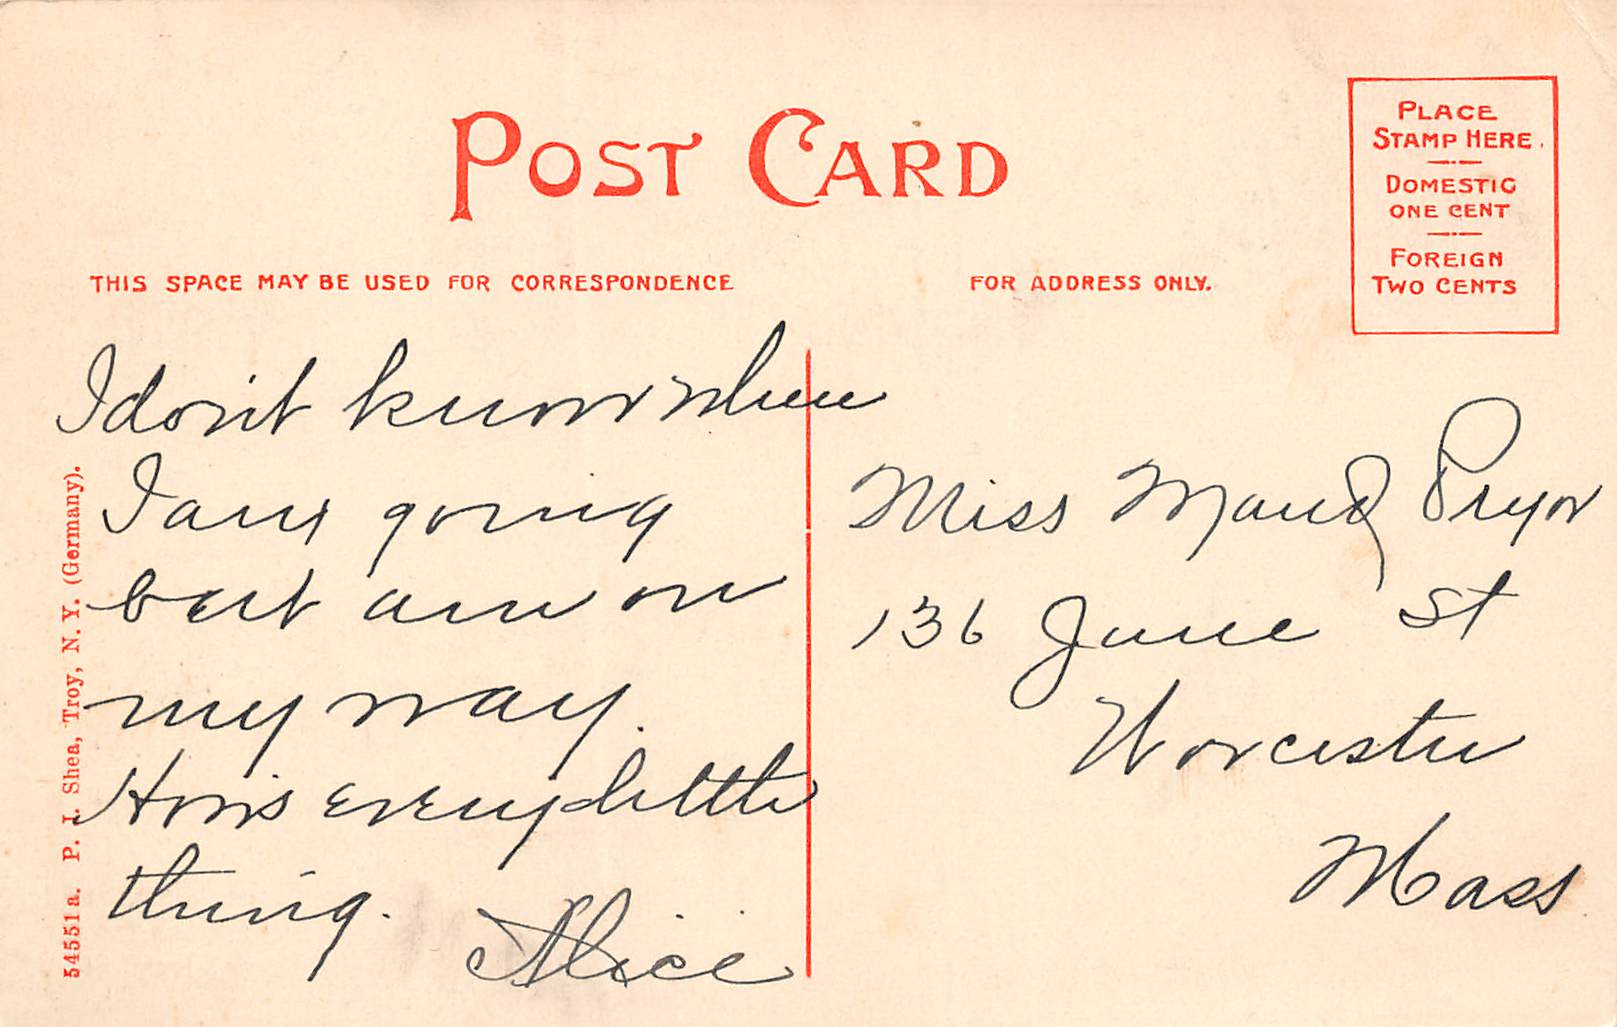 POST CARD
PLACE
STAMP HERE.
DOMESTIC
ONE CENT
FOREIGN
TWO CENTS
THIS SPACE MAY BE USED FOR CORRESPONDENCE
FOR ADDRESS ONLY.
I don't know when
I am going
but am on
my way.
How's every little
thing.
Alice
Miss Maud Pryor
136 June St
Worcester
Mass
54551 a. P. J. Shea, Troy, N. Y. (Germany).